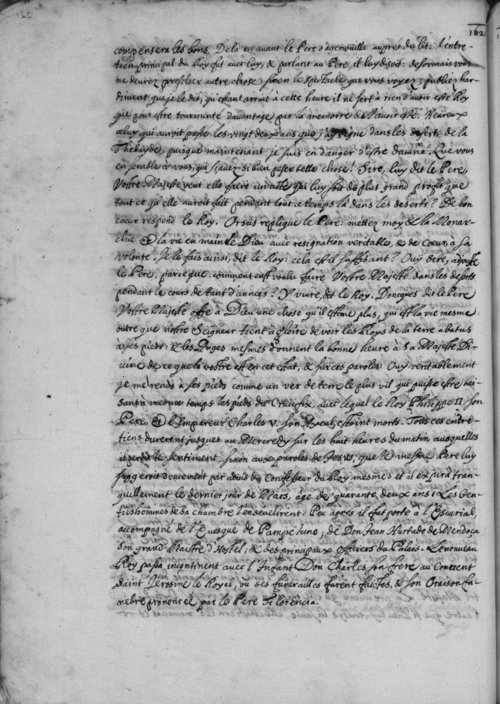 162
compensera les bons. De là en avant le Pere s'agenouille auprés du lit: l'entre-
tien principal du Roy fut avec luy, & parlant au Pere, il luy disoit: desormais vous
ne devez prescher autre chose sinon le spectacle que vous voyez, publiez har-
diment que je le dis, qu'estant arrivé à cette heure il ne sert à rien d'avoir esté Roy
que pour estre tourmenté davantage par la memoire de l'avoir esté. Heureux
celuy qui auroit passé les vingt deux ans que j'ay regné dans les deserts de la
Thebayde, puisque maintenant je suis en danger d'estre damné. Que vous
en semble à vous, qui sçavez si bien peser telle chose? Sire, luy dit le Pere
Vostre Majesté peut elle faire chose qui luy soit de plus grand profit que
tout ce qu'elle auroit fait pendant tout ce temps là dans les deserts? De bon
coeur respond le Roy. Orsus replique le Pere: mettez moy & la Monar-
chie & la vie en main de Dieu avec resignation veritable, & de coeur, à sa
volonté. Je le fais ainsi, dit le Roy: cela est il suffisant? Ouy dire, adjouste
le Pere, parce que comment eust voulu faire Vostre Majesté dans les deserts
pendant le cours de tant d'années? Y vivre, dit le Roy. Doncques dit le Pere
Vostre Majesté offre à Dieu une chose qu'il estime plus, qui est la vie mesme:
outre que nostre Seigneur tient à gloire de voir les Roys de la terre abatus
à ses pieds: & les Anges mesmes donnent la bonne heure à Sa Majesté Di-
vine de ce que le vostre est en cet estat, & sur ces paroles: Ouy veritablement
je me rends à ses pieds comme un ver de terre le plus vil qui puisse estre bai-
sant à mesme temps les pieds du Crucifix, avec lequel le Roy Philippe II son
Pere & l'Empereur Charles V. son Ayeul, estoint morts. Tous ces entre-
tiens durerent jusques au Mercredy sur les huit heures du matin, ausquelles
il perdit le sentiment, sinon aux paroles de Jesus, que le mesme Pere luy
suggeroit doucement par nous du Confesseur du Roy mesme: et il expira tran-
quillement le dernier jour de Mars, âgé de quarante deux ans: Les Gen-
tilshommes de sa Chambre l'ensevelirent. Peu aprés il fut porté à l'Escurial
accompagné de l'Evesque de Pampeluno, de Don Jean Hurtado de Mendoça
son grand Maistre d'Hostel, & des principaux officiers du Palais. Le nouveau
Roy passa incontinent avec l'Infant Don Charles son frere au Couvent
Saint Jerosme le Royal, où les funerailles furent faictes, & son Oraison fu-
nebre prononcée par le Pere Florencia.